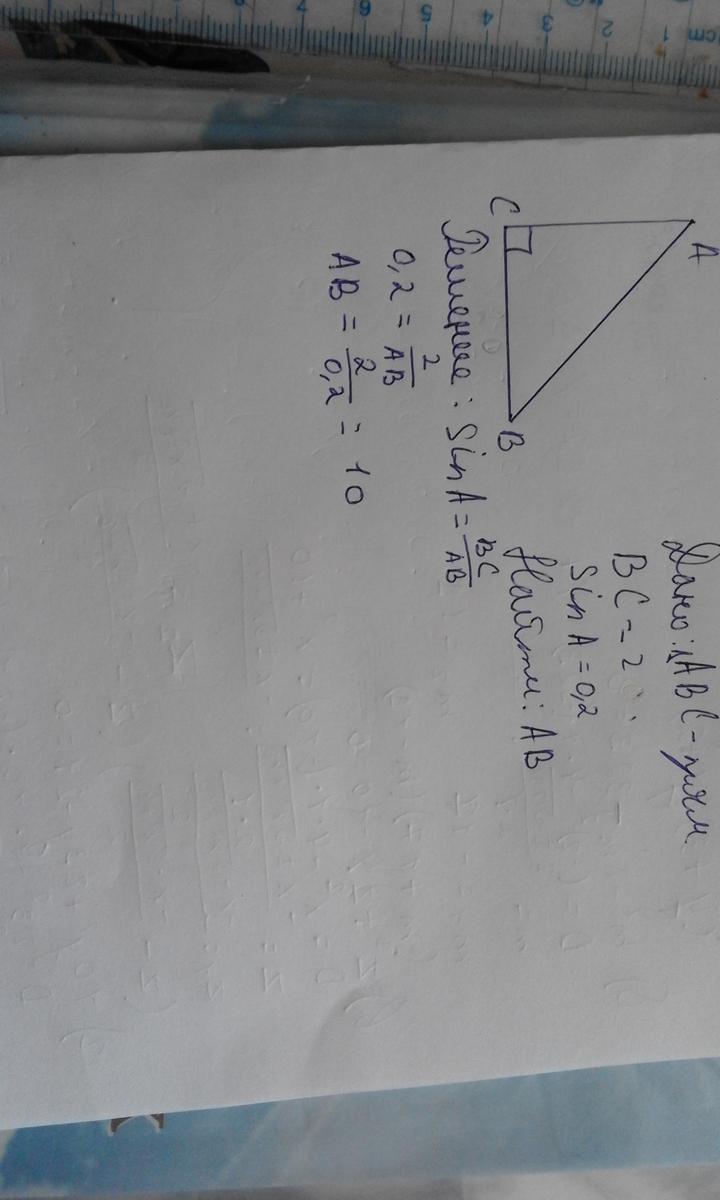 A
C
B
Дано: △ABC - прям.
BC = 2
Sin A = 0,2
Найти: AB
Решение: Sin A = BC/AB
0,2 = 2/AB
AB = 2/0,2 = 10
cm 1 2 3 4 5 6 7 8